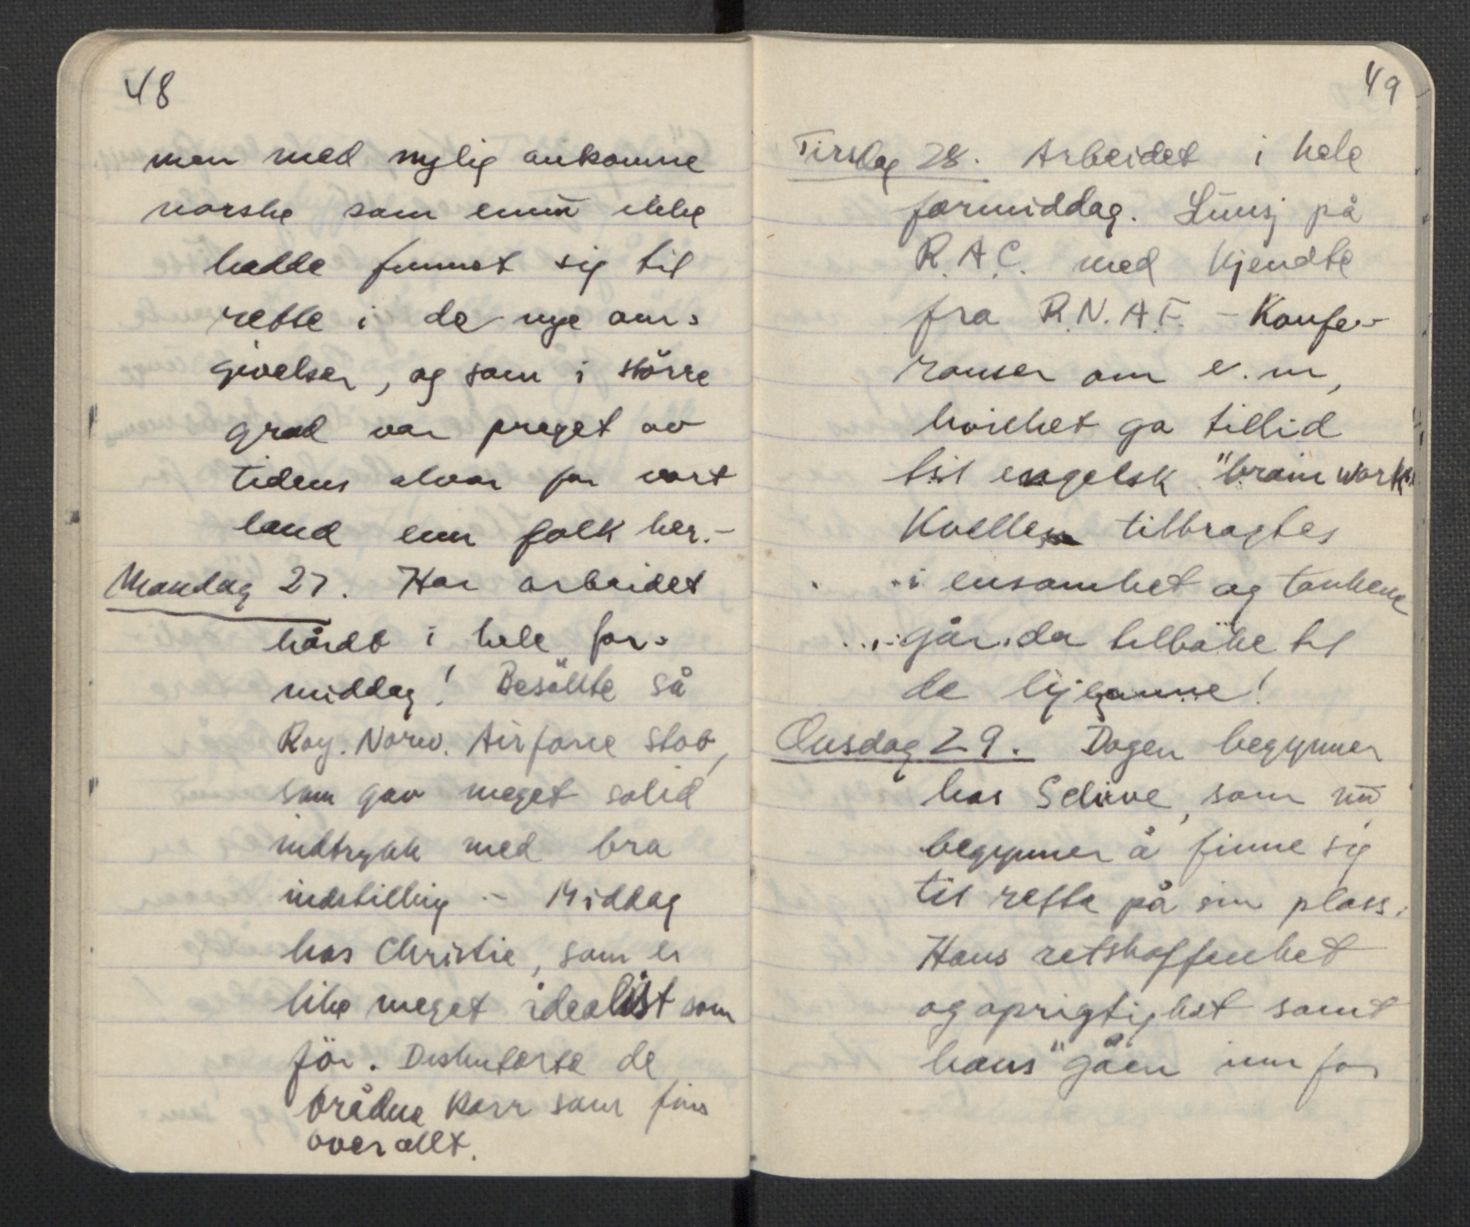 48
men med nylig ankomne
norske som ennu ikke
hadde funnet sig til
rette i de nye om=
givelser, og som i större
grad var preget av
tidens alvor for vort
land enn folk her.-
Mandag 27. Har arbeidet
hårdt i hele for=
middag! Besökte så
Roy. Norw. Airforce stab,
som gav meget solid
indtrykk med bra
indstilling - Middag
hos Christie, som er
like meget idealist som
för. Diskuterte de
brådne karr som fins
over allt.
49
Tirsdag 28. Arbeidet i hele
formiddag. Lunsj på
R.A.C. med kjendte
fra R.N.A.F. - Konfe-
ranser om e.m,
hvilket ga tillid
til engelsk "brain work"
Kvellen tilbragtes
i ensomhet og tankene
går da tilbake til
de hjemme!
Onsdag 29. Dagen begynner
hos Schive, som nu
begynner å finne sig
til rette på sin plass.
Hans retskaffenhet
og oprigtighet samt
hans "gåen inn for